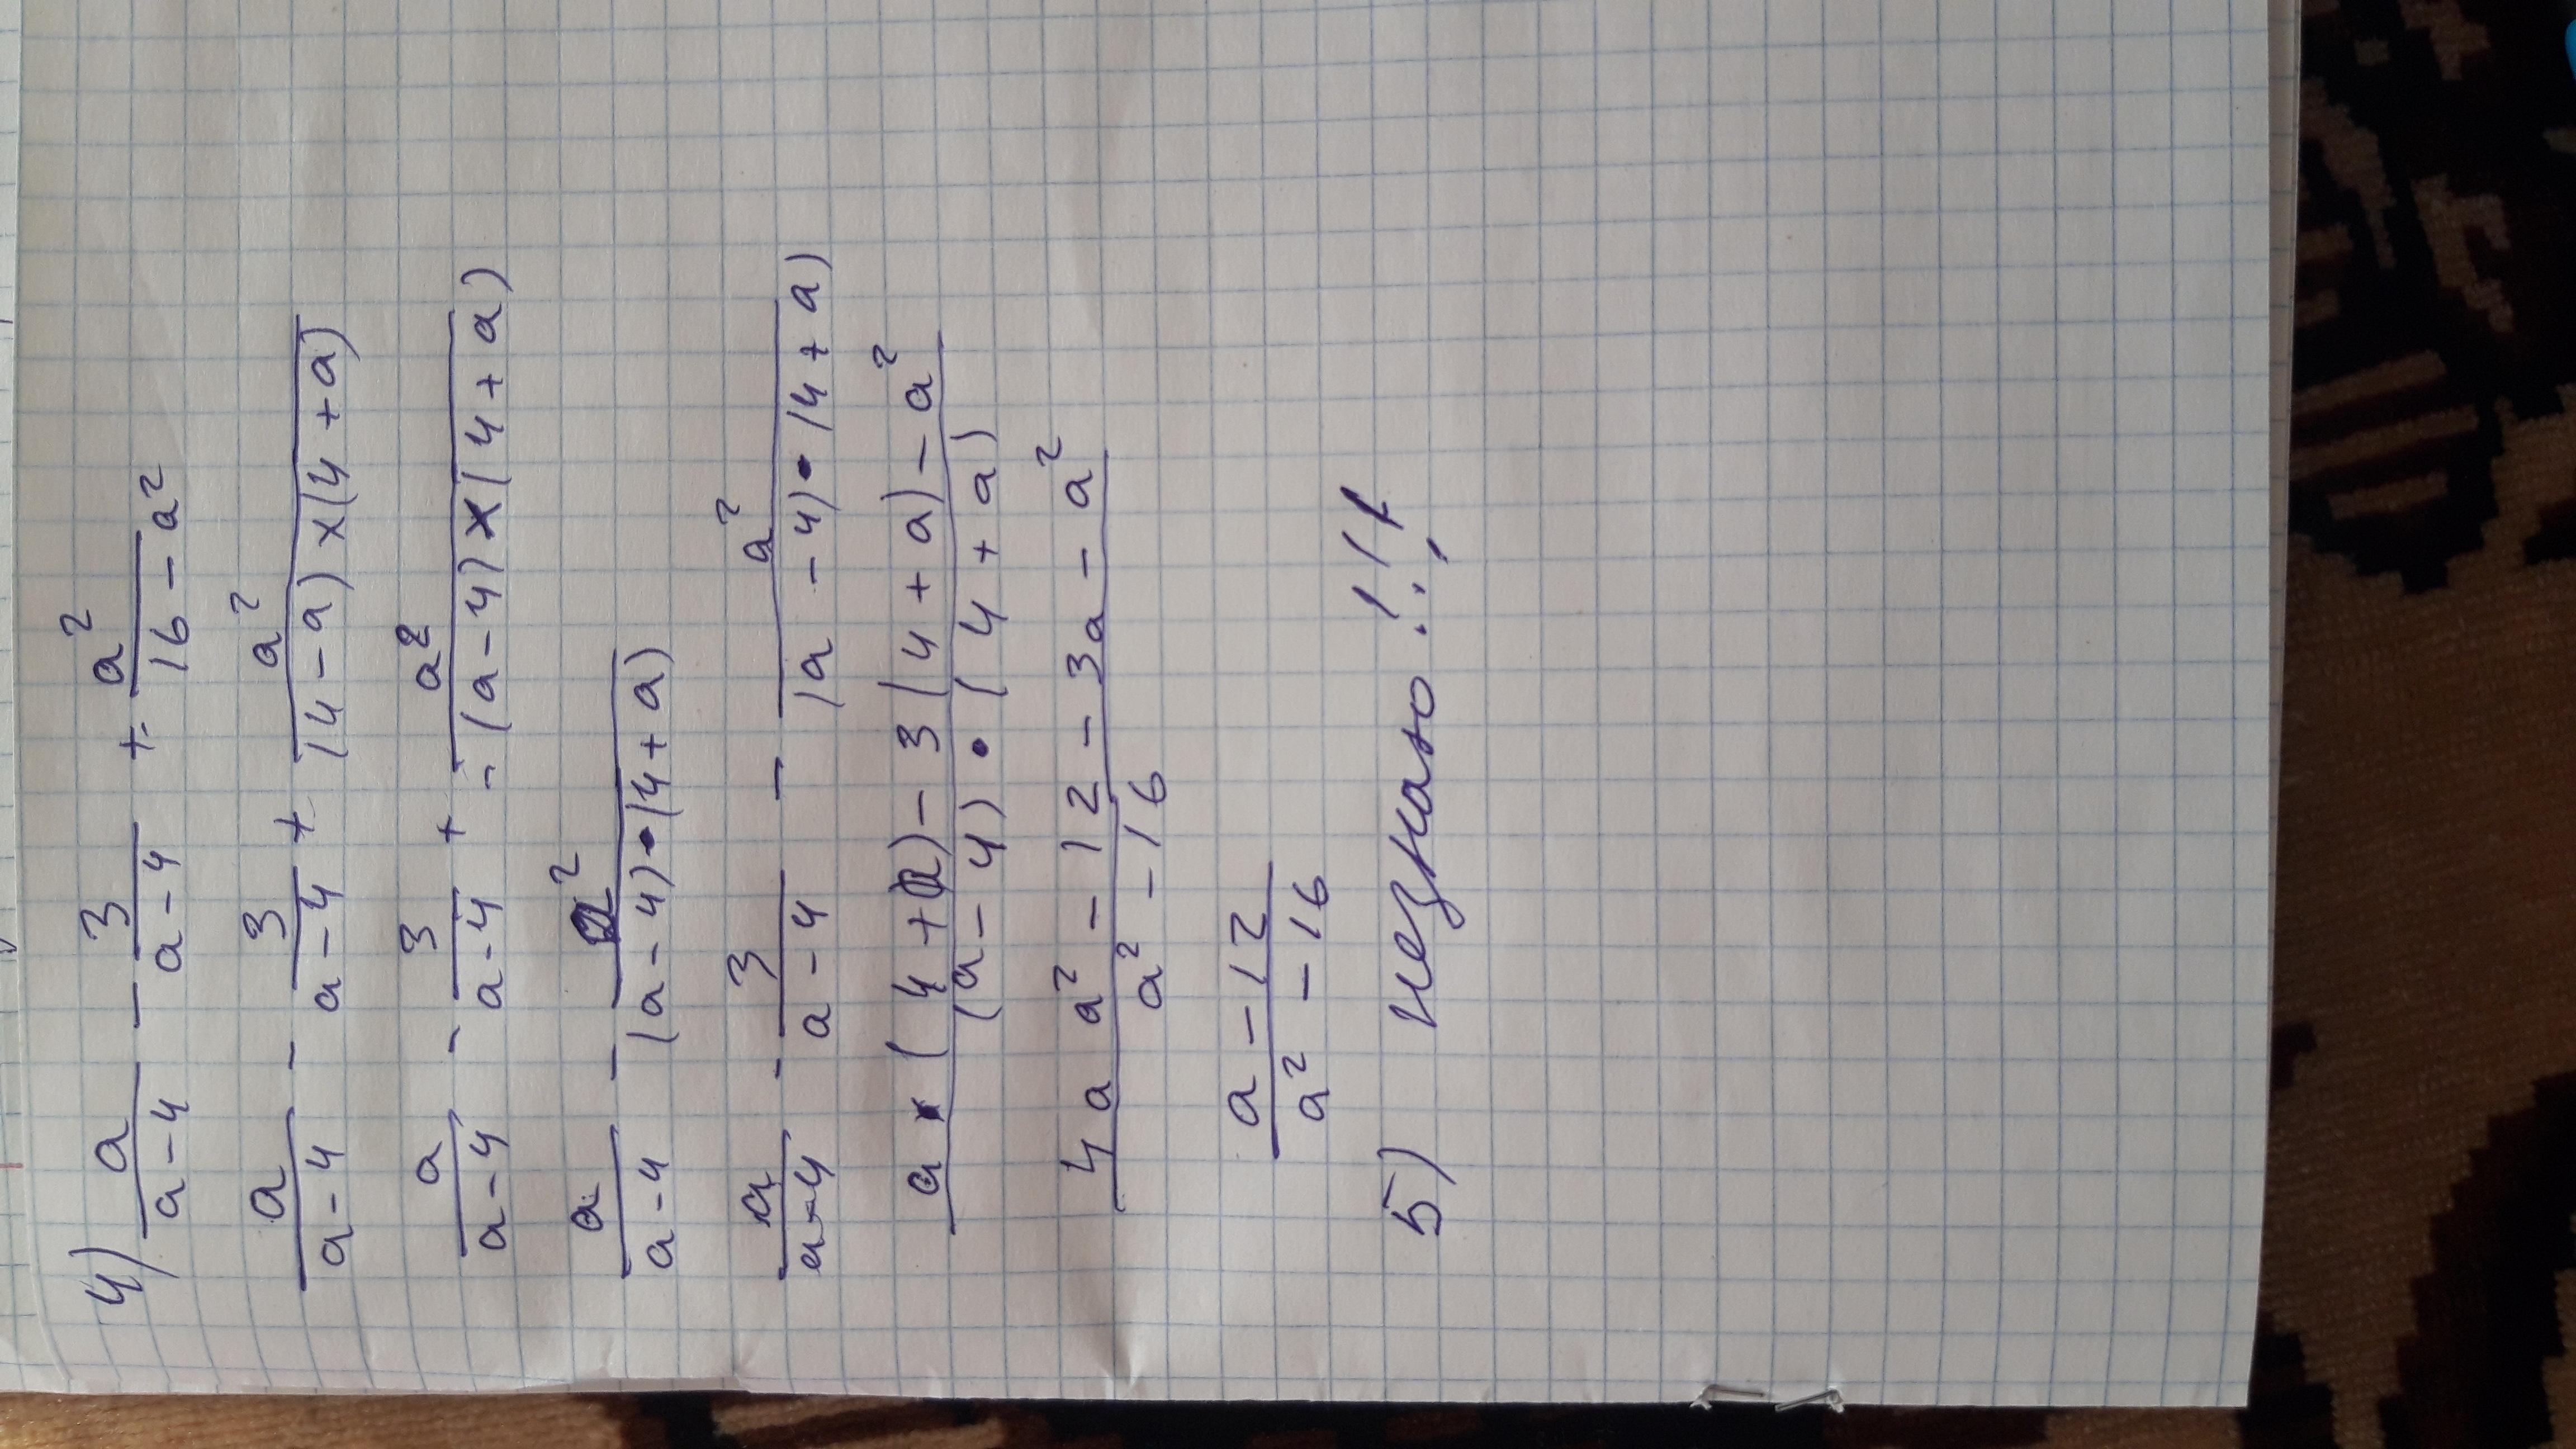 4) a/(a-4) - 3/(a-4) + a²/(16-a²)
a/(a-4) - 3/(a-4) + a²/((4-a)×(4+a))
a/(a-4) - 3/(a-4) + a²/(-(a-4)×(4+a))
a/(a-4) - a²/((a-4)·(4+a))
a/(a-4) - 3/(a-4) - a²/((a-4)·(4+a))
(a×(4+a)-3(4+a)-a²)/((a-4)·(4+a))
(4a a²-12-3a-a²)/(a²-16)
(a-12)/(a²-16)
5) незнаю!!!